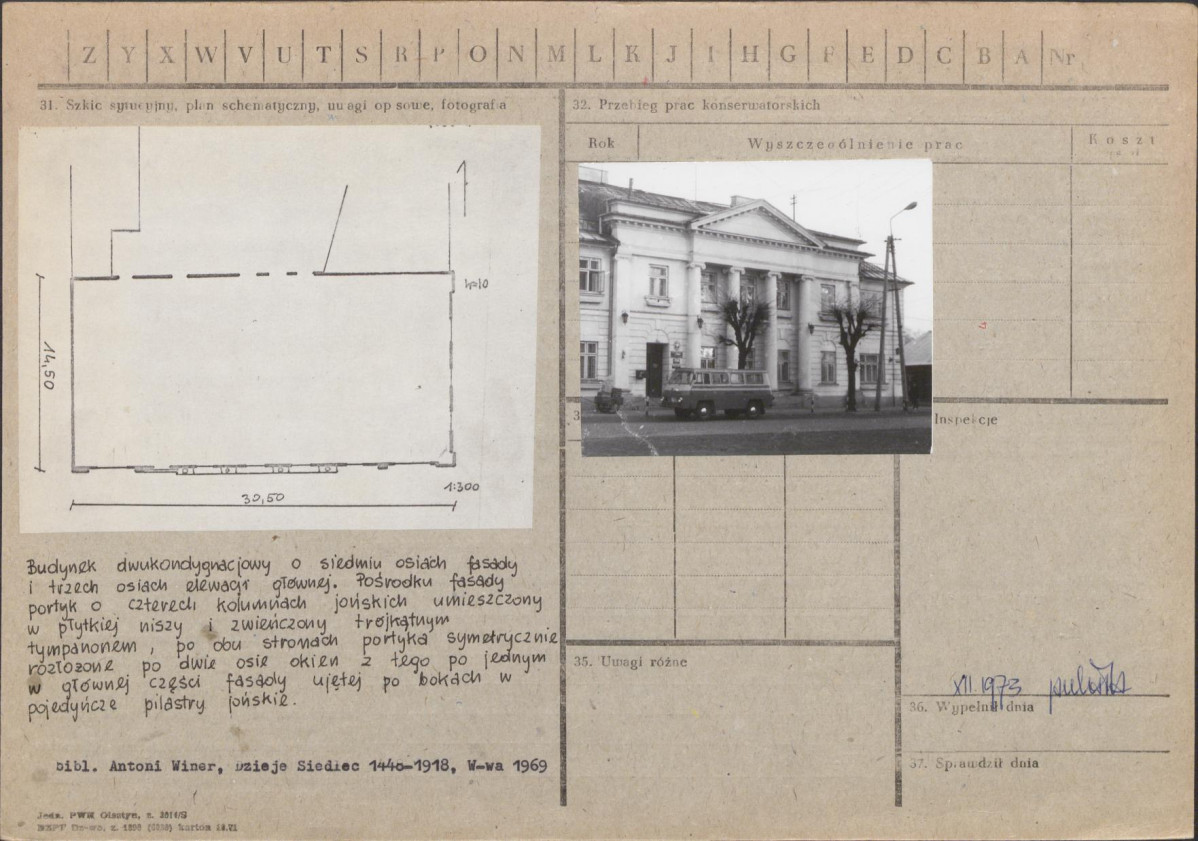 Z Y X W V U T S R P O N M L K J I H G F E D C B A Nr
31. Szkic sytuacyjny, plan schematyczny, uwagi opisowe, fotografia
h=10
14,50
30,50
1:300
Budynek dwukondygnacjowy o siedmiu osiach fasady
i trzech osiach elewacji głównej. Pośrodku fasady
portyk o czterech kolumnach jońskich umieszczony
w płytkiej niszy i zwieńczony trójkątnym
tympanonem, po obu stronach portyka symetrycznie
rozłożone po dwie osie okien z tego po jednym
w głównej części fasady ujętej po bokach w
pojedyńcze pilastry jońskie.
bibl. Antoni Winer, Dzieje Siedlec 1440-1918, W-wa 1969
Jedn. PWR Olsztyn, z.
32. Przebieg prac konserwatorskich
Rok Wyszczególnienie prac Koszt
Inspekcje
35. Uwagi różne
XII.1973
36. Wypełnił dnia
37. Sprawdził dnia